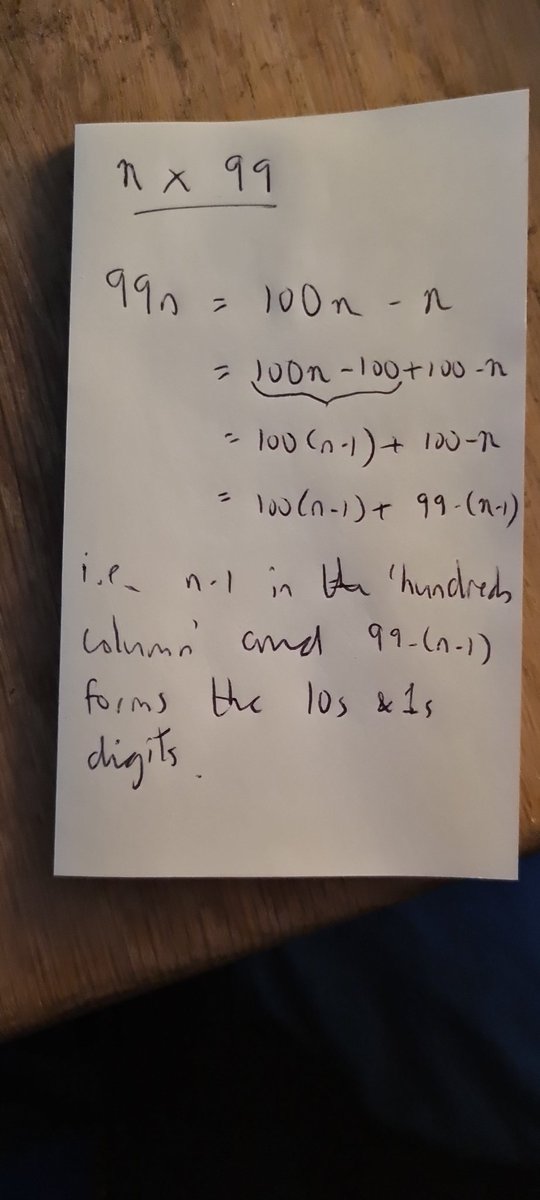 n × 99
99n = 100n - n
= 100n - 100 + 100 - n
= 100(n-1) + 100-n
= 100(n-1) + 99-(n-1)
i.e. n-1 in the 'hundreds
column' and 99-(n-1)
forms the 10s & 1s
digits.